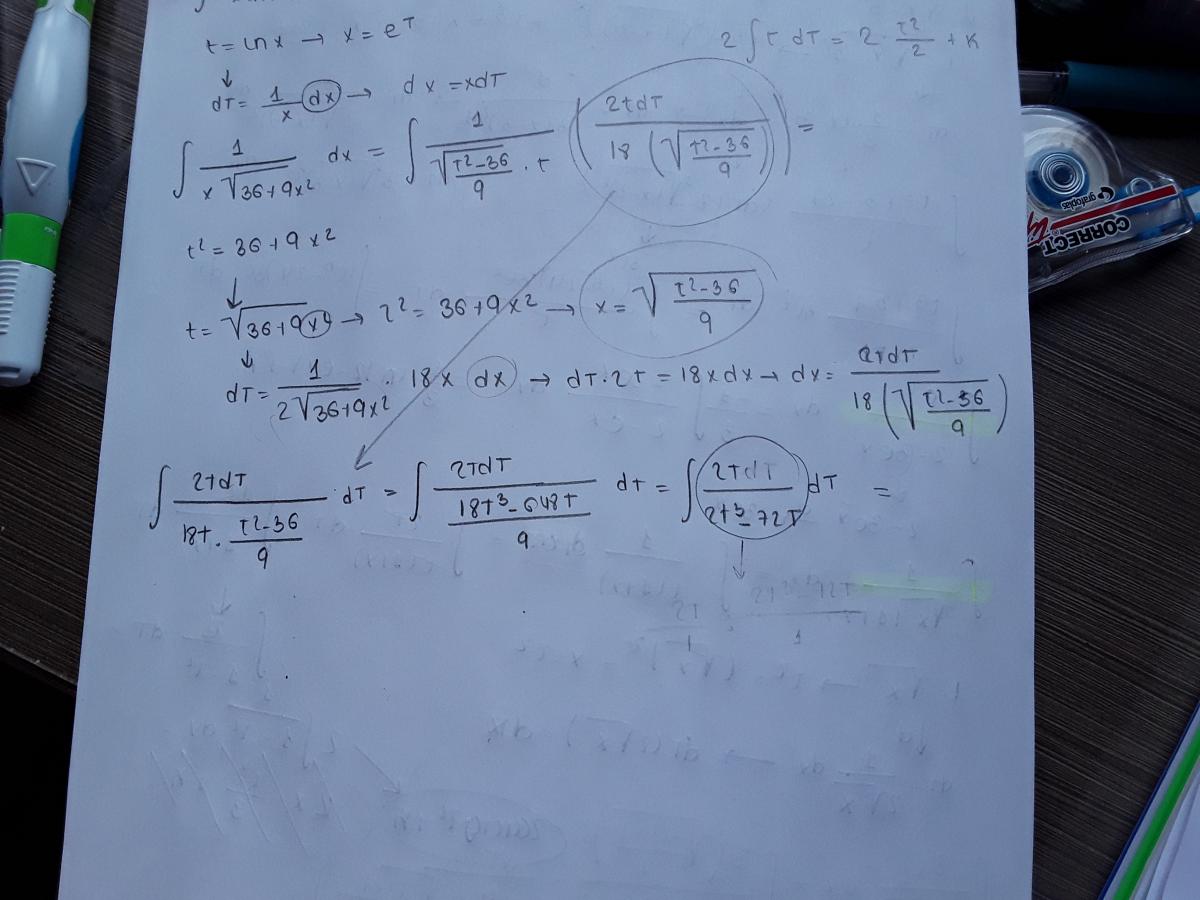 t = ln x → x = e^T
2∫ t dT = 2 · T²/2 + K
↓
dT = 1/x dx → dx = xdT
∫ 1/(x√(36+9x²)) dx = ∫ 1/(√((T²-36)/9) · t) (2tdT/(18(√((T²-36)/9)))) =
t² = 36+9x²
↓
t = √(36+9x²) → t² = 36+9x² → x = √((T²-36)/9)
↓
dT = 1/(2√(36+9x²)) · 18x dx → dT·2T = 18xdx → dx = 2TdT/(18(√((T²-36)/9)))
∫ 2tdT/(18t · (T²-36)/9) · dT = ∫ 2TdT/((18T³-648T)/9) dT = ∫ 2TdT/(2t³-72T) dT =
↓
CORRECT
grafoplas